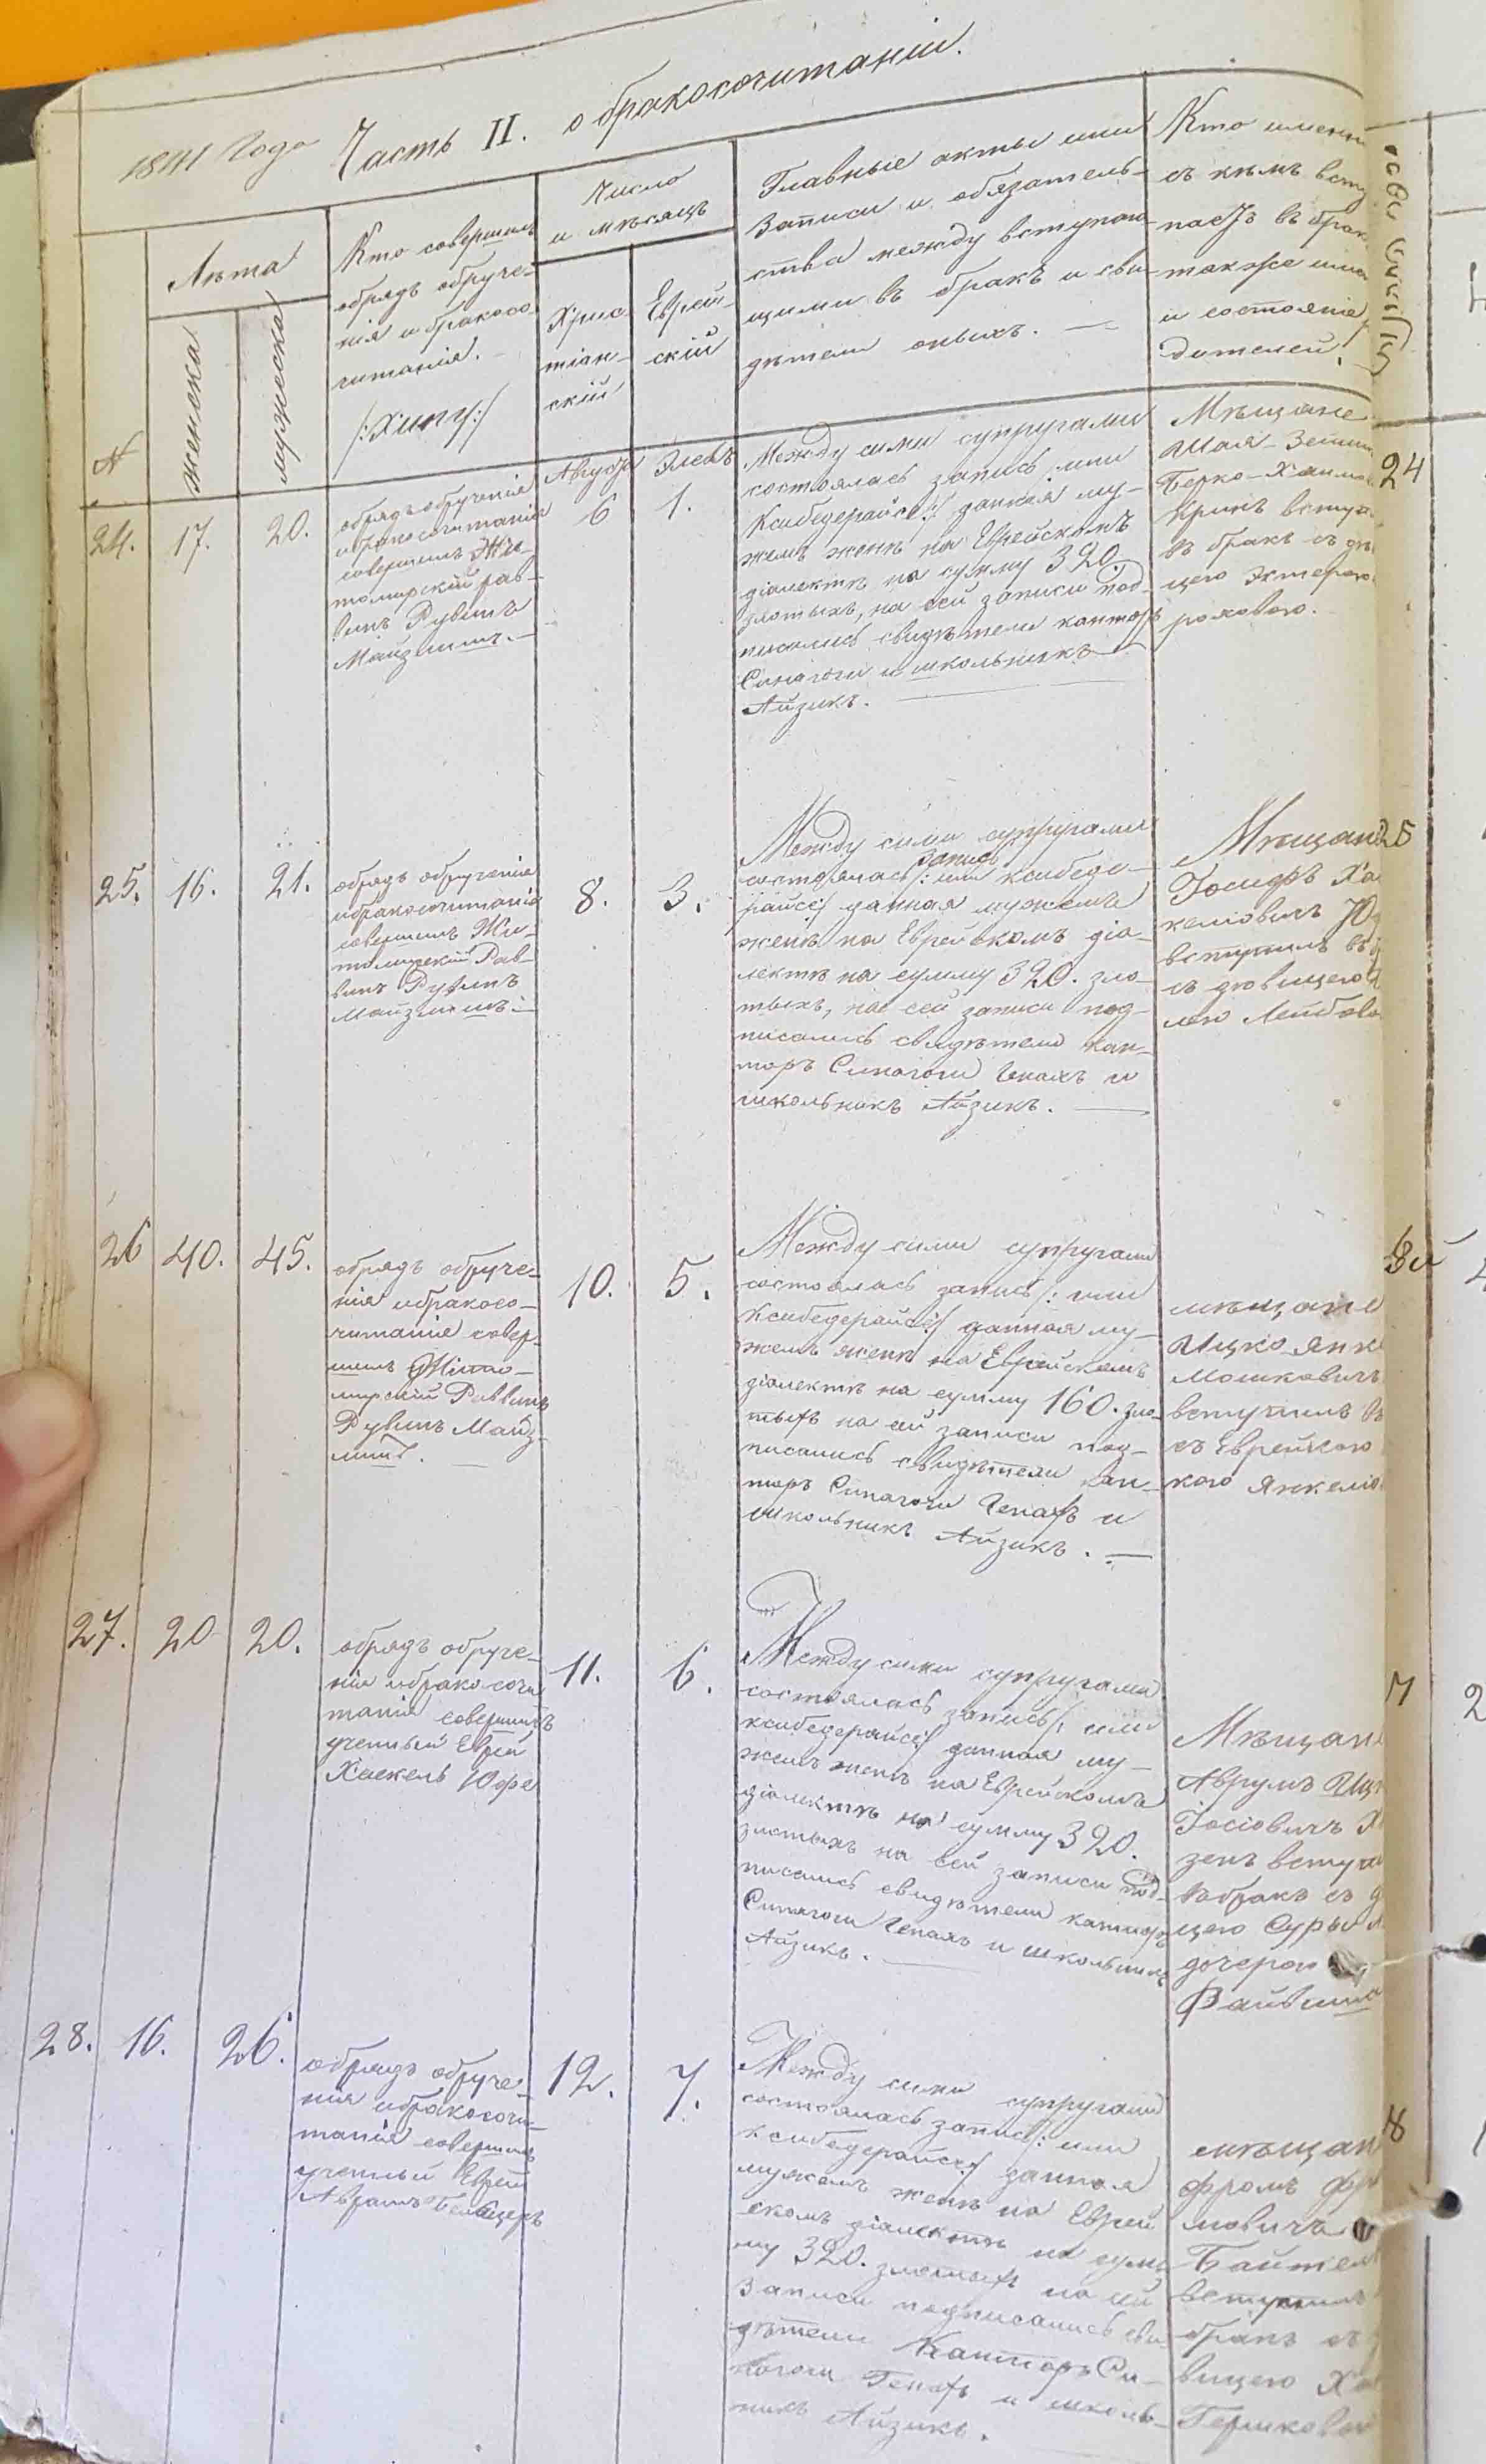 1841 Года Часть II. о бракосочитаніи.
№
Лѣта
женска
мужеска
Кто совершилъ
обрядъ обруче-
нія и бракосо
читанія.
/:Хипу:/
Число
и мѣсяцъ
Хрис
тіан-
скій
Еврей-
скій
Главные акты или
Записи и обязатель-
ства между вступаю-
щими въ бракъ и сви-
дѣтели оныхъ. —
Кто именно
съ кѣмъ всту
паетъ въ брак
также имя
и состояніе
дителей.
24.
17.
20.
обрядъ обрученія
и бракосочитанія
совершилъ Жи-
томирскій рав-
винъ Рувинъ
Майзлишъ. —
Августа
6
Элевъ
1.
Между сими супругами
состоялась запись /:или
Ксибедерайсе:/ данная му-
жемъ женѣ на Еврейскомъ
діалектѣ на сумму 320.
злотыхъ, на сей записи под-
писались свидѣтели канторъ
Синагоги и школьникъ
Айзикъ. —
Мѣщане
Шая-Зейли
Берко-Хаимо
вступ
въ бракъ съ дѣ
цею
24
25.
16.
21.
обрядъ обрученія
и бракосочитанія
совершилъ Жи-
томирскій Рав-
винъ Рувинъ
Майзлишъ: —
8.
3.
Между сими супругами
запись
состоялась /: или ксибеде-
райсе:/ данная мужемъ
женѣ на Еврейскомъ діа-
лектѣ на сумму 320. зло-
тыхъ, на сей записи под-
писались свидѣтели кан-
торъ Синагоги Генахъ и
школьникъ Айзикъ. —
Мѣщане
Іосифъ Ха
келіовичъ Ю
вступилъ въ б
съ дѣвицею
лею Лейбово
25
26
40.
45.
обрядъ обруче-
нія и бракосо-
читанія совер-
шилъ Жито-
мирскій Раввинъ
Рувинъ Майз-
лишъ. —
10.
5.
Между сими супругами
состоялась запись /: или
Ксибедерайсе:/ данная му-
жемъ женѣ на Еврейскомъ
діалектѣ на сумму 160. зло-
тыхъ на сей записи под-
писались свидѣтели кан-
торъ Синагоги Генахъ и
школьникъ Айзикъ. —
мѣщане
Ицко-Янк
Мошковичъ
вступилъ въ
съ Еврейкою
кою Янкеліо
27.
20
20.
обрядъ обруче-
нія и бракосочи
танія совершилъ
ученный Еврей
Хаскель Юфе
11.
6.
Между сими супругами
состоялась запись /: или
ксибедерайсе:/ данная му-
жемъ женѣ на Еврейскомъ
діалектѣ на сумму 320.
злотыхъ на сей записи под-
писались свидѣтели канторъ
Синагоги Генахъ и школьникъ
Айзикъ. —
Мѣщане
Аврумъ Иц
Іосіовичъ Х
зенъ вступи
въ бракъ съ д
цею Суры
дочерою
Файвиша
7
2
28.
16.
26.
обрядъ обруче-
нія и бракосочи-
танія совершилъ
ученный Еврей
12.
7.
Между сими супругами
состоялась запись /: или
ксибедерайсе:/ данная
мужемъ женѣ на Еврей
скомъ діалектѣ на сум
му 320. злотыхъ на сей
Записи подписались сви-
дѣтели Канторъ Си-
нагоги Генахъ и школь-
никъ Айзикъ.
мѣщан
фромъ фр
мовичъ
Байтел
вступилъ
бракъ съ
вицею Ха
Гершково